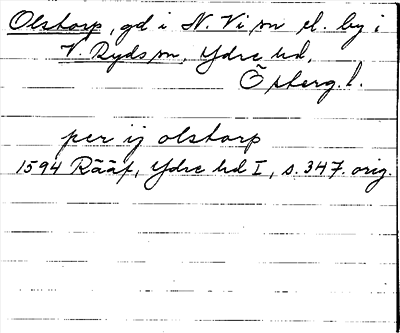 Olstorp, gd i N. Vi sn el. by i
V. Ryds sn, Ydre hd,
Österg. l.
per ij olstorp
1594 Rääf, Ydre hd I, s. 347. orig.